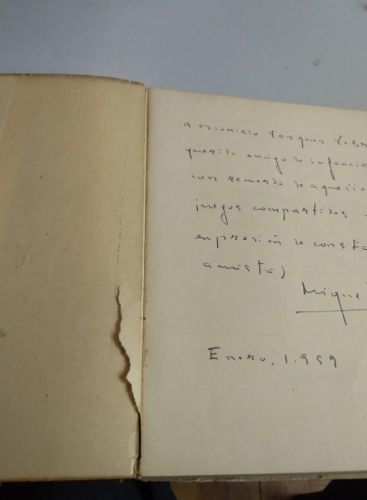 A Dionisio
querido amigo de infancia
con recuerdo de aquellos
juegos compartidos
expresión de consta
amistad
Miguel
Enero, 1.959